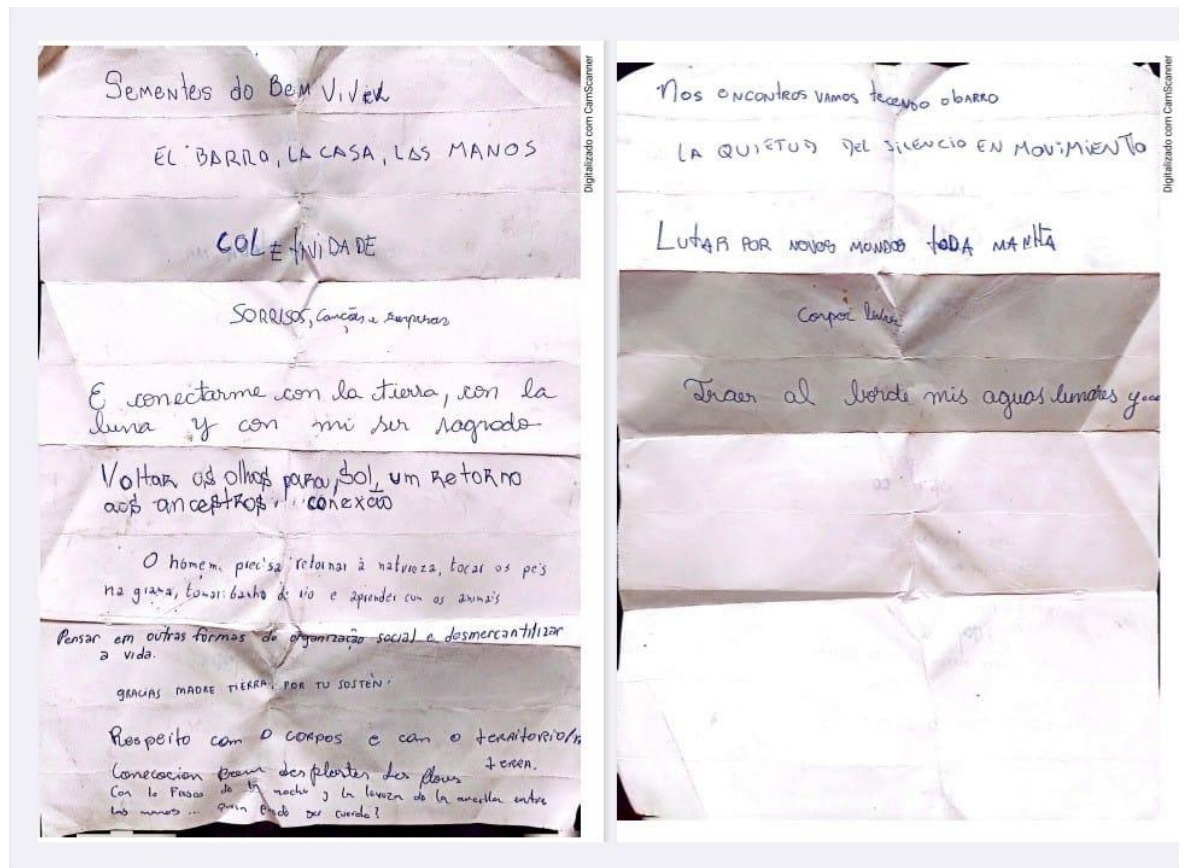 Sementes do Bem Viver
EL BARRO, LA CASA, LAS MANOS
COLETIVIDADE
SORRISOS, Canções e surpresas
E conectarme con la tierra, con la
luna y con mi ser sagrado
Voltar os olhos para, Sol, um Retorno
aos ancestros... conexão
O homem precisa retornar à natureza, tocar os pés
na grama, tomar banho de rio e aprender com os animais
Pensar em outras formas de organização social e desmercantilizar
a vida.
GRACIAS MADRE TIERRA, POR TU SOSTÉN.
Respeito com o corpos e com o território/
terra.
Conecocion des plantes des
Con lo de la noche y la de la arcilla entre
las manos... ser cuerdo?
Digitalizado com CamScanner
Nos encontros vamos tecendo o barro
LA QUIETUD DEL SILENCIO EN MOVIMIENTO
Lutar por novos mundos toda manhã
Corpos livres
Traer al borde mis aguas lunares y...
Digitalizado com CamScanner